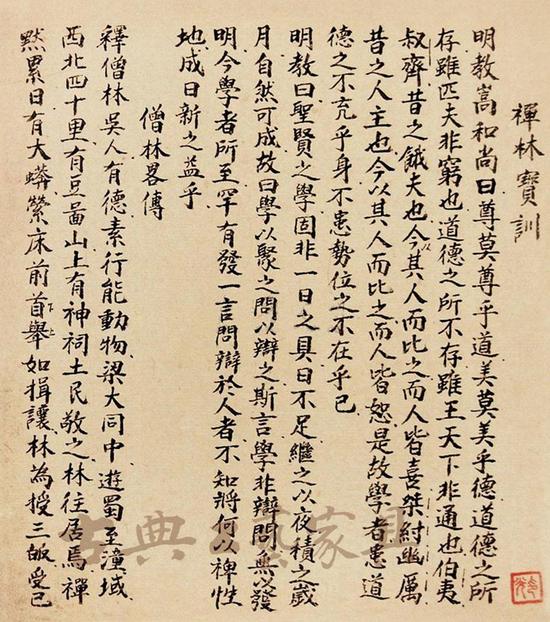 禪林寶訓
明教嵩和尚曰尊莫尊乎道美莫美乎德道德之所
存雖匹夫非窮也道德之所不存雖王天下非通也伯夷
叔齊昔之餓夫也今以其人而比之而人皆喜桀紂幽厲
昔之人主也今以其人而比之而人皆恕是故學者患道
德之不充乎身不患勢位之不在乎己
明教曰聖賢之學固非一日之具日不足繼之以夜積之歲
月自然可成故曰學以聚之問以辯之斯言學非辯問無以發
明今學者所至罕有發一言問辯於人者不知將何以裨性
地成日新之益乎
僧林畧傳
釋僧林吳人有德素行能動物梁大同中遊蜀至潼域
西北四十里有豆圌山上有神祠土民敬之林往居焉禪
黙累日有大蟒縈床前首舉如揖讓林為授三皈受已